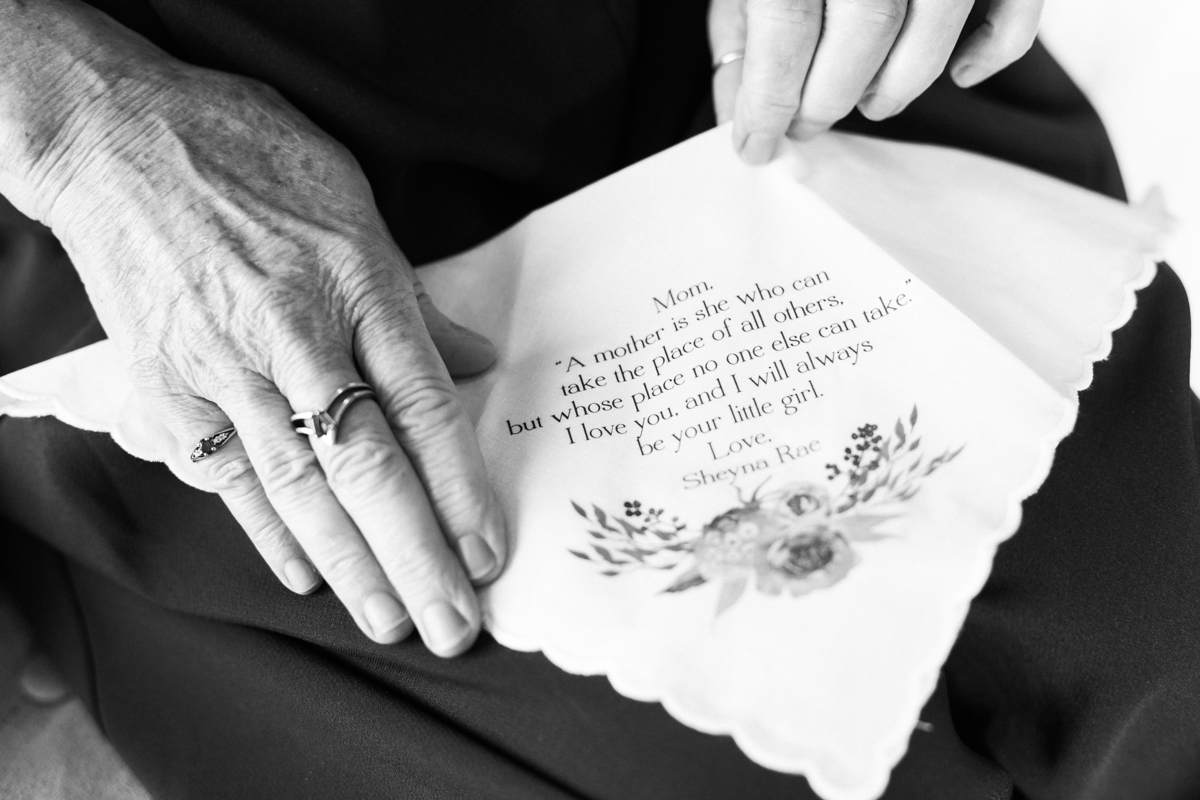 Mom,
"A mother is she who can
take the place of all others,
but whose place no one else can take."
I love you, and I will always
be your little girl.
Love,
Sheyna Rae